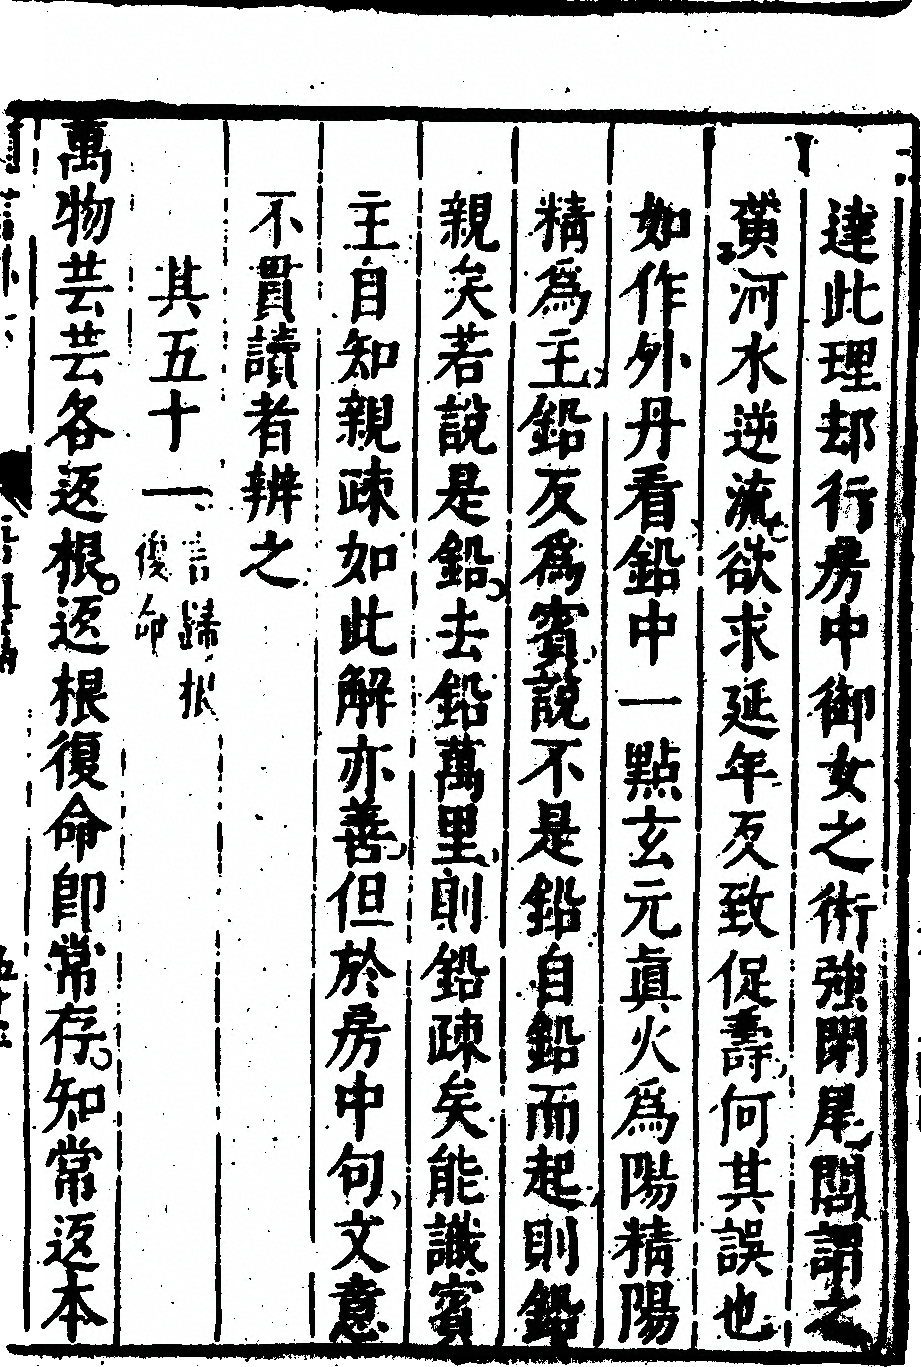 達此理却行房中御女之術強閉尾閭謂之
黃河水逆流欲求延年反致促壽何其誤也
如作外丹看鉛中一點玄元眞火爲陽精陽
精爲主鉛反爲賓說不是鉛自鉛而起則鉛
親矣若說是鉛去鉛萬里則鉛疎矣能識賓
主自知親疎如此解亦善但於房中句文意
不貫讀者辨之
其五十一
言歸根
復命
萬物芸芸各返根返根復命卽常存知常返本